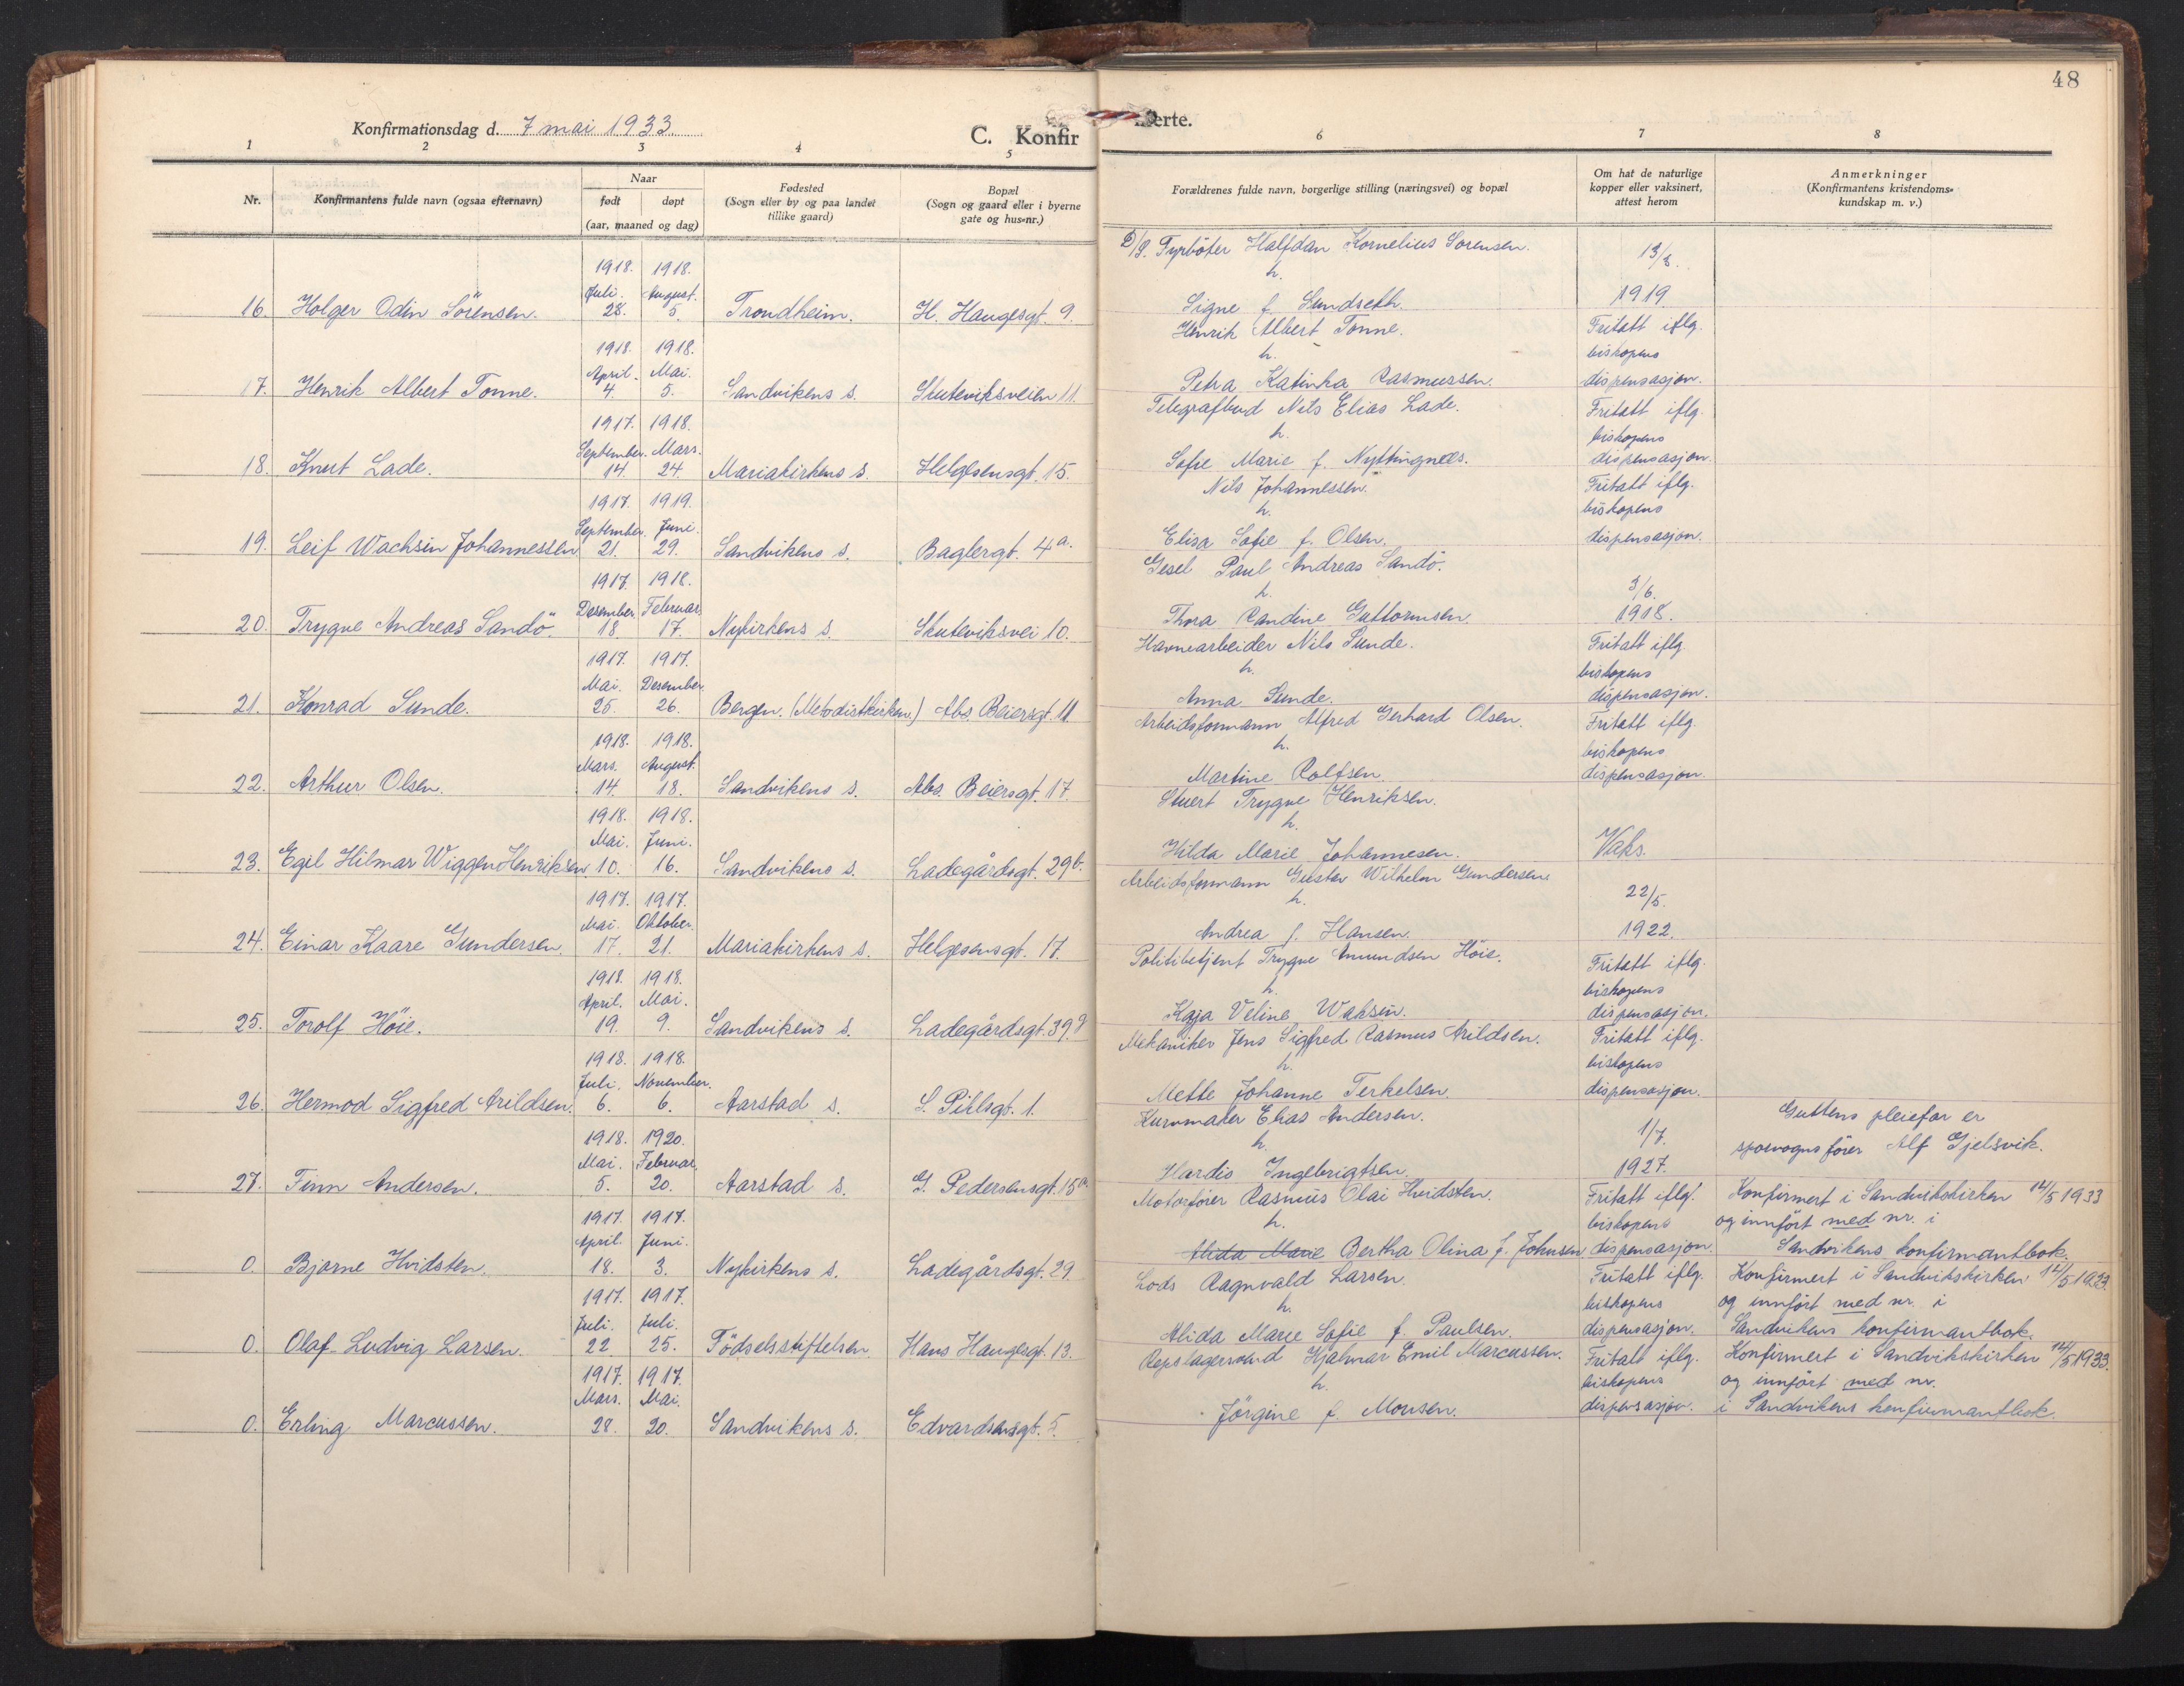 48
Konfirmationsdag d. 7 mai 1933.
C. Konfir
erte.
1 2 3 4 5 6 7 8
Nr.
Konfirmantens fulde navn (ogsaa efternavn)
Naar
født døpt
(aar, maaned og dag)
Fødested
(Sogn eller by og paa landet
tillike gaard)
Bopæl
(Sogn og gaard eller i byerne
gate og hus-nr.)
Forældrenes fulde navn, borgerlige stilling (næringsvei) og bopæl
Om hat de naturlige
kopper eller vaksinert,
attest herom
Anmerkninger
(Konfirmantens kristendoms-
kundskap m. v.)
1918. 1918.
Juli. August.
16. Holger Odin Sörensen. 28. 5. Trondheim. H. Haugesgt. 9.
D/S. Fyrböter Halfdan Kornelius Sorensen.
h.
Signe f. Sundseth.
13/8.
1919.
1918. 1918.
April. Mai.
17. Henrik Albert Tonne. 4. 5. Sandvikens s. Skuteviksveien 11.
Henrik Albert Tonne.
h.
Petra Katinka Rasmussen.
Fritatt iflg.
biskopens
dispensasjon.
1917. 1918.
September. Mars.
18. Knut Lade. 14. 24. Mariakirkens s. Helgesensgt. 15.
Telegrafbud Nils Elias Lade.
h.
Sofie Marie f. Nyttingnes.
Fritatt iflg.
biskopens
dispensasjon.
1917. 1919.
September. Juni.
19. Leif Wachsin Johannessen 21. 29. Sandvikens s. Baglergt. 4a.
Nils Johannessen.
h.
Elisa Sofie f. Olsen.
Fritatt iflg.
biskopens
dispensasjon.
1917. 1918.
Desember. Februar.
20. Trygve Andreas Sandö. 18. 17. Nykirkens s. Skuteviksvei 10.
Gesel Paul Andreas Sandö.
h.
Thora Randine Guttormsen.
3/6.
1918.
1917. 1917.
Mai. Desember.
21. Konrad Sunde. 25. 26. Bergen. (Metodistkirken.) Abs. Beiersgt. 11
Havnearbeider Nils Sunde.
h.
Anna Sunde.
Fritatt iflg.
biskopens
dispensasjon.
1918. 1918.
Mars. August.
22. Arthur Olsen. 14. 18. Sandvikens s. Abs. Beiersgt. 17.
Arbeidsformann Alfred Gerhard Olsen.
h.
Martine Rolfsen.
Fritatt iflg.
biskopens
dispensasjon.
1918. 1918.
Mai. Juni.
23. Egil Hilmar Wiggen Henriksen. 10. 16. Sandvikens s. Ladegårdsgt. 29b.
Stuert Trygve Henriksen.
h.
Hilda Marie Johannesen.
Vaks.
1917. 1917.
Mai. Oktober.
24. Einar Kaare Gundersen. 17. 21. Mariakirkens s. Helgesensgt. 17.
Arbeidsformann Gustav Wilhelm Gundersen.
h.
Andrea f. Hansen.
22/5.
1922.
1918. 1918.
April. Mai.
25. Torolf Höie. 19. 9. Sandvikens s. Ladegårdsgt. 39
Politibetjent Trygve Amundsen Höie.
h.
Kaja Veline Waksin.
Fritatt iflg.
biskopens
dispensasjon.
1918. 1918.
Juli. November.
26. Hermod Sigfred Arildsen. 6. 6. Aarstad s. S. Pihlsgt. 1.
Mekaniker Jens Sigfred Rasmus Arildsen.
h.
Mette Johanne Terkelsen.
Fritatt iflg.
biskopens
dispensasjon.
1918. 1920.
Mai. Februar.
27. Finn Andersen. 5. 20. Aarstad s. G. Pedersensgt. 15a.
Kurvmaker Elias Andersen.
h.
Hardis Ingebrigtsen.
1/7.
1927.
Guttens pleiefar er
sporvognsfører Alf Gjelsvik.
1917. 1917.
April. Juni.
0. Bjarne Hvidsten. 18. 3. Nykirkens s. Ladegårdsgt. 29
Motorfører Rasmus Olai Hvidsten.
h.
Alida Marie Bertha Olina f. Johnsen
Fritatt iflg.
biskopens
dispensasjon.
Konfirmert i Sandvikskirken 14/5 1933
og innført med nr. i
Sandvikens konfirmantbok.
1917. 1917.
Juli. Juli.
0. Olaf Ludvig Larsen. 22 25. Födselsstiftelsen. Hans Haugesgt. 13.
Lods Ragnvald Larsen.
h.
Alida Marie Sofie f. Paulsen.
Fritatt iflg.
biskopens
dispensasjon.
Konfirmert i Sandvikskirken 14/5 1933.
og innført med nr. i
Sandvikens konfirmantbok.
1917. 1917.
Mars. Mai.
0. Erling Marcussen. 28. 20. Sandvikens s. Edvardsensgt. 5.
Repslagersvend Hjalmar Emil Marcussen.
h.
Jörgine f. Monsen.
Fritatt iflg.
biskopens
dispensasjon.
Konfirmert i Sandvikskirken 14/5 1933.
og innført med nr.
i Sandvikens konfirmantbok.